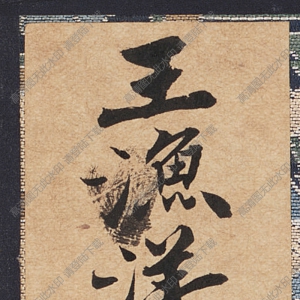 王漁洋